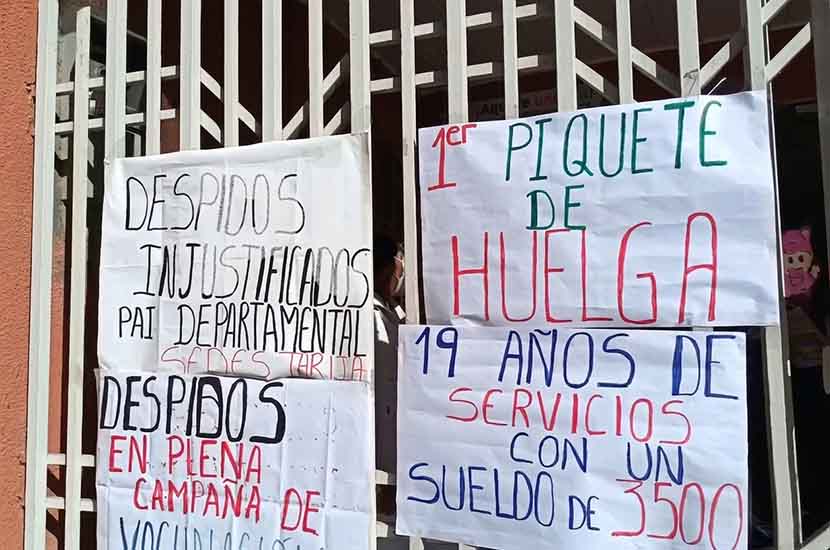 DESPIDOS
INJUSTIFICADOS
PAI DEPARTAMENTAL
SEDES TARIJA
DESPIDOS
EN PLENA
CAMPAÑA DE
1er PIQUETE
DE
HUELGA
19 AÑOS DE
SERVICIOS
CON UN
SUELDO DE 3500